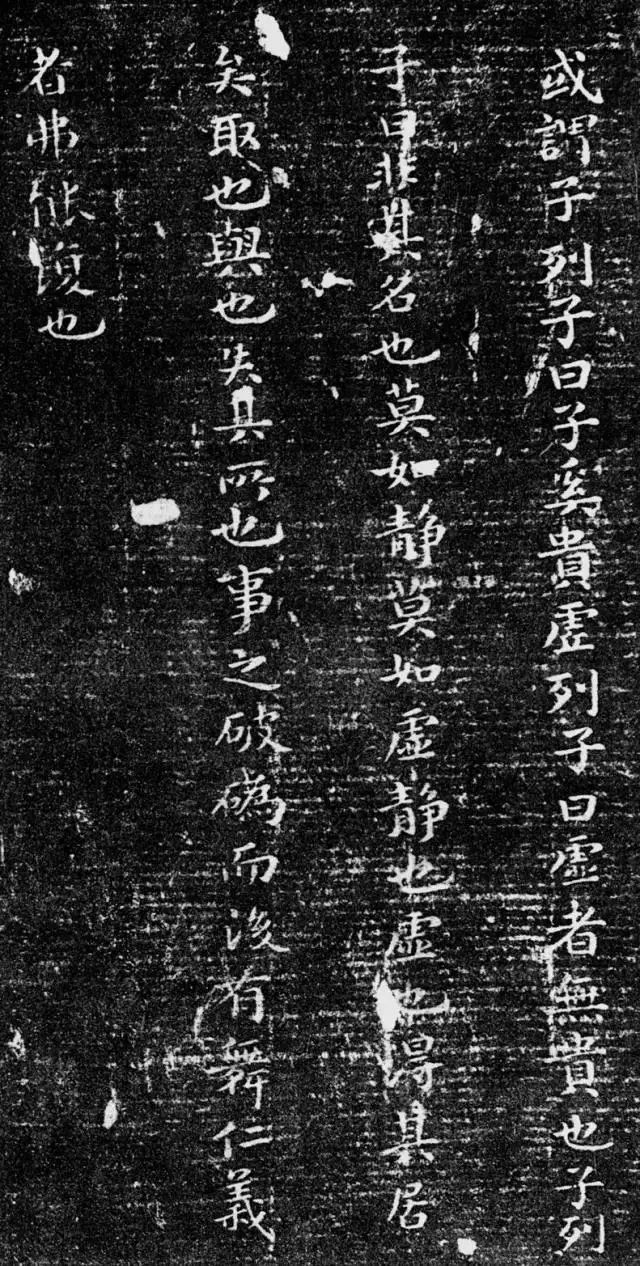 或謂子列子曰子奚貴虛列子曰虛者無貴也子列
子曰非其名也莫如静莫如虛静也虛也得其居
矣取也與也失其所也事之破䃣而後有舞仁義
者弗能復也